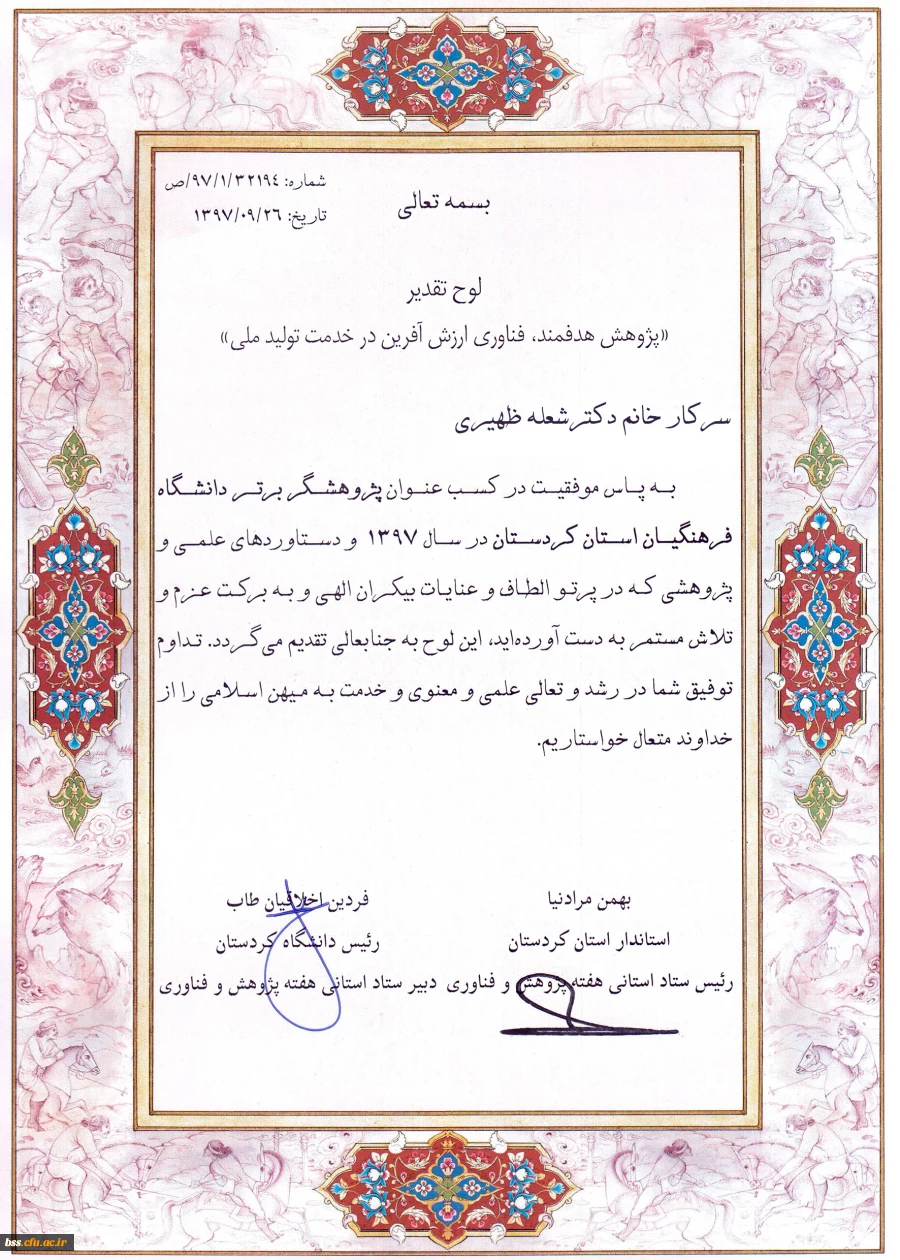 شماره: ۹۷/۱/۳۲۱۹٤/ص
تاریخ: ۱۳۹۷/۰۹/۲٦
بسمه تعالی
لوح تقدیر
«پژوهش هدفمند، فناوری ارزش آفرین در خدمت تولید ملی»
سرکار خانم دکتر شعله ظهیری
به پاس موفقیت در کسب عنوان پژوهشگر برتر دانشگاه
فرهنگیان استان کردستان در سال ۱۳۹۷ و دستاوردهای علمی و
پژوهشی که در پرتو الطاف و عنایات بیکران الهی و به برکت عزم و
تلاش مستمر به دست آورده‌اید، این لوح به جنابعالی تقدیم می‌گردد. تداوم
توفیق شما در رشد و تعالی علمی و معنوی و خدمت به میهن اسلامی را از
خداوند متعال خواستاریم.
بهمن مرادنیا
استاندار استان کردستان
رئیس ستاد استانی هفته پژوهش و فناوری
فردین اخلاقیان طاب
رئیس دانشگاه کردستان
دبیر ستاد استانی هفته پژوهش و فناوری
bss.cfu.ac.ir